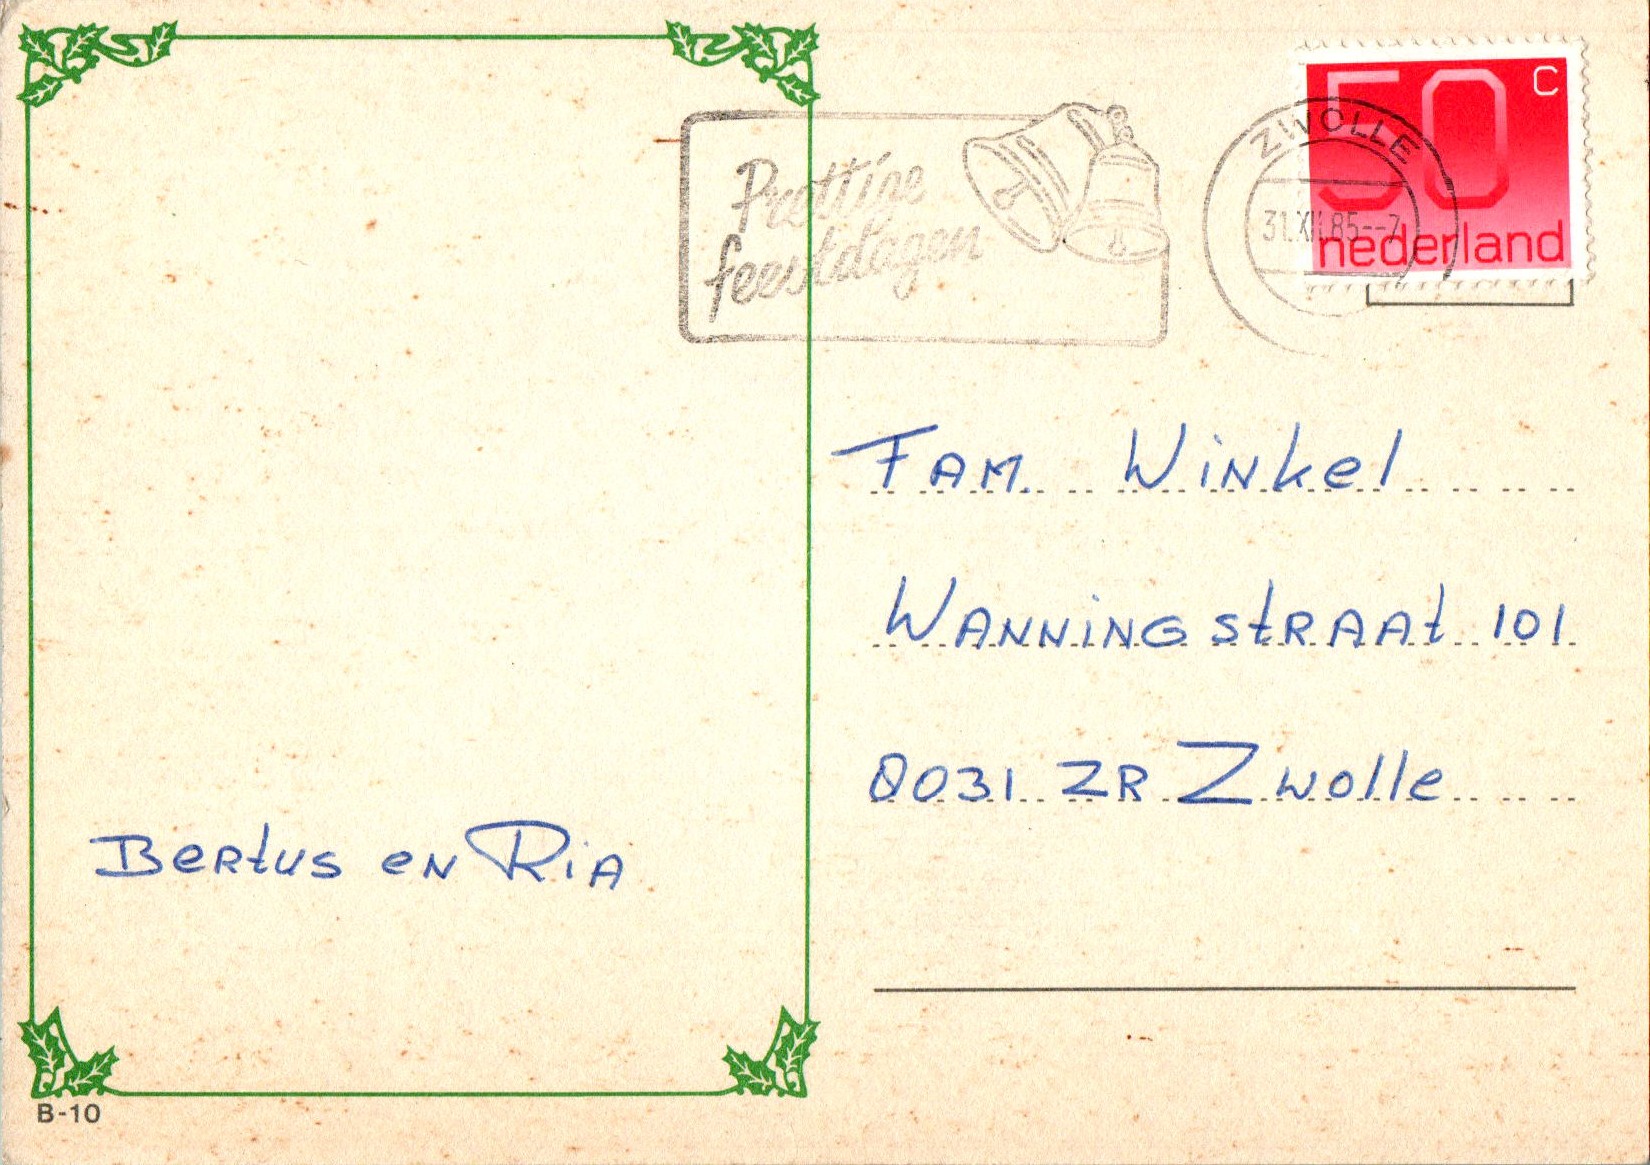 Prettige
feestdagen
ZWOLLE
31.XII.85--7
50 C
nederland
FAM. Winkel
WANNINGstRAAt 101
8031 ZR Zwolle
BeRtus eN RiA
B-10